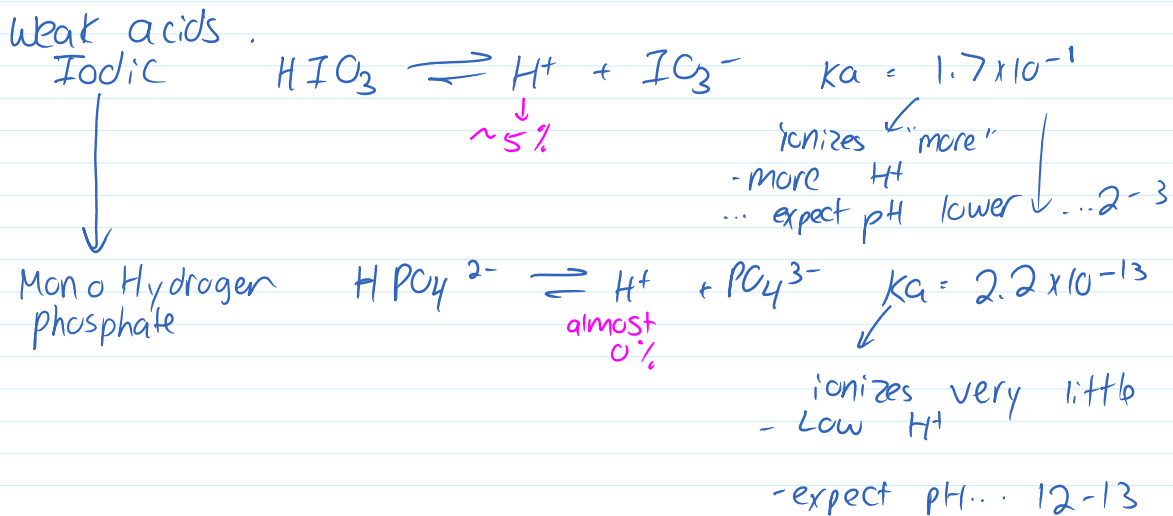 Weak acids.
Iodic HIO3 ⇌ H+ + IO3- Ka = 1.7x10-1
↓
~5%
ionizes "more"
- more H+
... expect pH lower ...2-3
Mono Hydrogen HPO4 2- ⇌ H+ + PO4 3- Ka = 2.2x10-13
phosphate
almost
0%
ionizes very little
- Low H+
- expect pH... 12-13